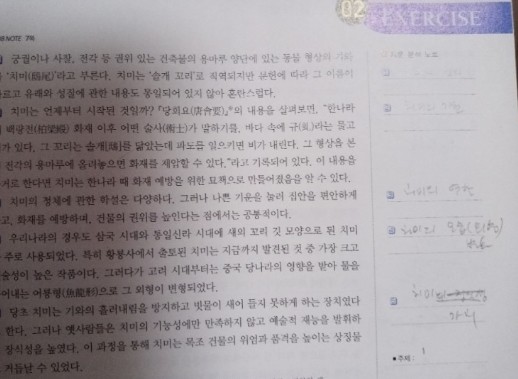 02
EXERCISE
NOTE
궁궐이나 사찰, 전각 등 권위 있는 건축물의 용마루 양단에 있는 동물 형상의 기와
'치미(鴟尾)'라고 부른다. 치미는 '솔개 꼬리'로 직역되지만 문헌에 따라 그 이름이
다르고 유래와 성질에 관한 내용도 통일되어 있지 않아 혼란스럽다.
치미는 언제부터 시작된 것일까? 『당회요(唐會要)』의 내용을 살펴보면, "한나라
백량전(柏梁殿) 화재 이후 어떤 술사(術士)가 말하기를, 바다 속에 규(虬)라는 물고
가 있다. 그 꼬리는 솔개를 닮았는데 파도를 일으키면 비가 내린다. 그 형상을 본
전각의 용마루에 올려놓으면 화재를 제압할 수 있다."라고 기록되어 있다. 이 내용을
거로 한다면 치미는 한나라 때 화재 예방을 위한 묘책으로 만들어졌음을 알 수 있다.
치미의 정체에 관한 학설은 다양하다. 그러나 나쁜 기운을 눌러 집안을 편안하게
고, 화재를 예방하며, 건물의 권위를 높인다는 점에서는 공통적이다.
우리나라의 경우도 삼국 시대와 통일신라 시대에 새의 꼬리 깃 모양으로 된 치미
주로 사용되었다. 특히 황룡사에서 출토된 치미는 지금까지 발견된 것 중 가장 크고
술성이 높은 작품이다. 그러다가 고려 시대부터는 중국 당나라의 영향을 받아 물을
어내는 어룡형(魚龍形)으로 그 외형이 변형되었다.
당초 치미는 기와의 흘러내림을 방지하고 빗물이 새어 들지 못하게 하는 장치였다
한다. 그러나 옛사람들은 치미의 기능성에만 만족하지 않고 예술적 재능을 발휘하
장식성을 높였다. 이 과정을 통해 치미는 목조 건물의 위엄과 품격을 높이는 상징물
거듭날 수 있었다.
치미의
치미의 모습
치미
• 주제 :